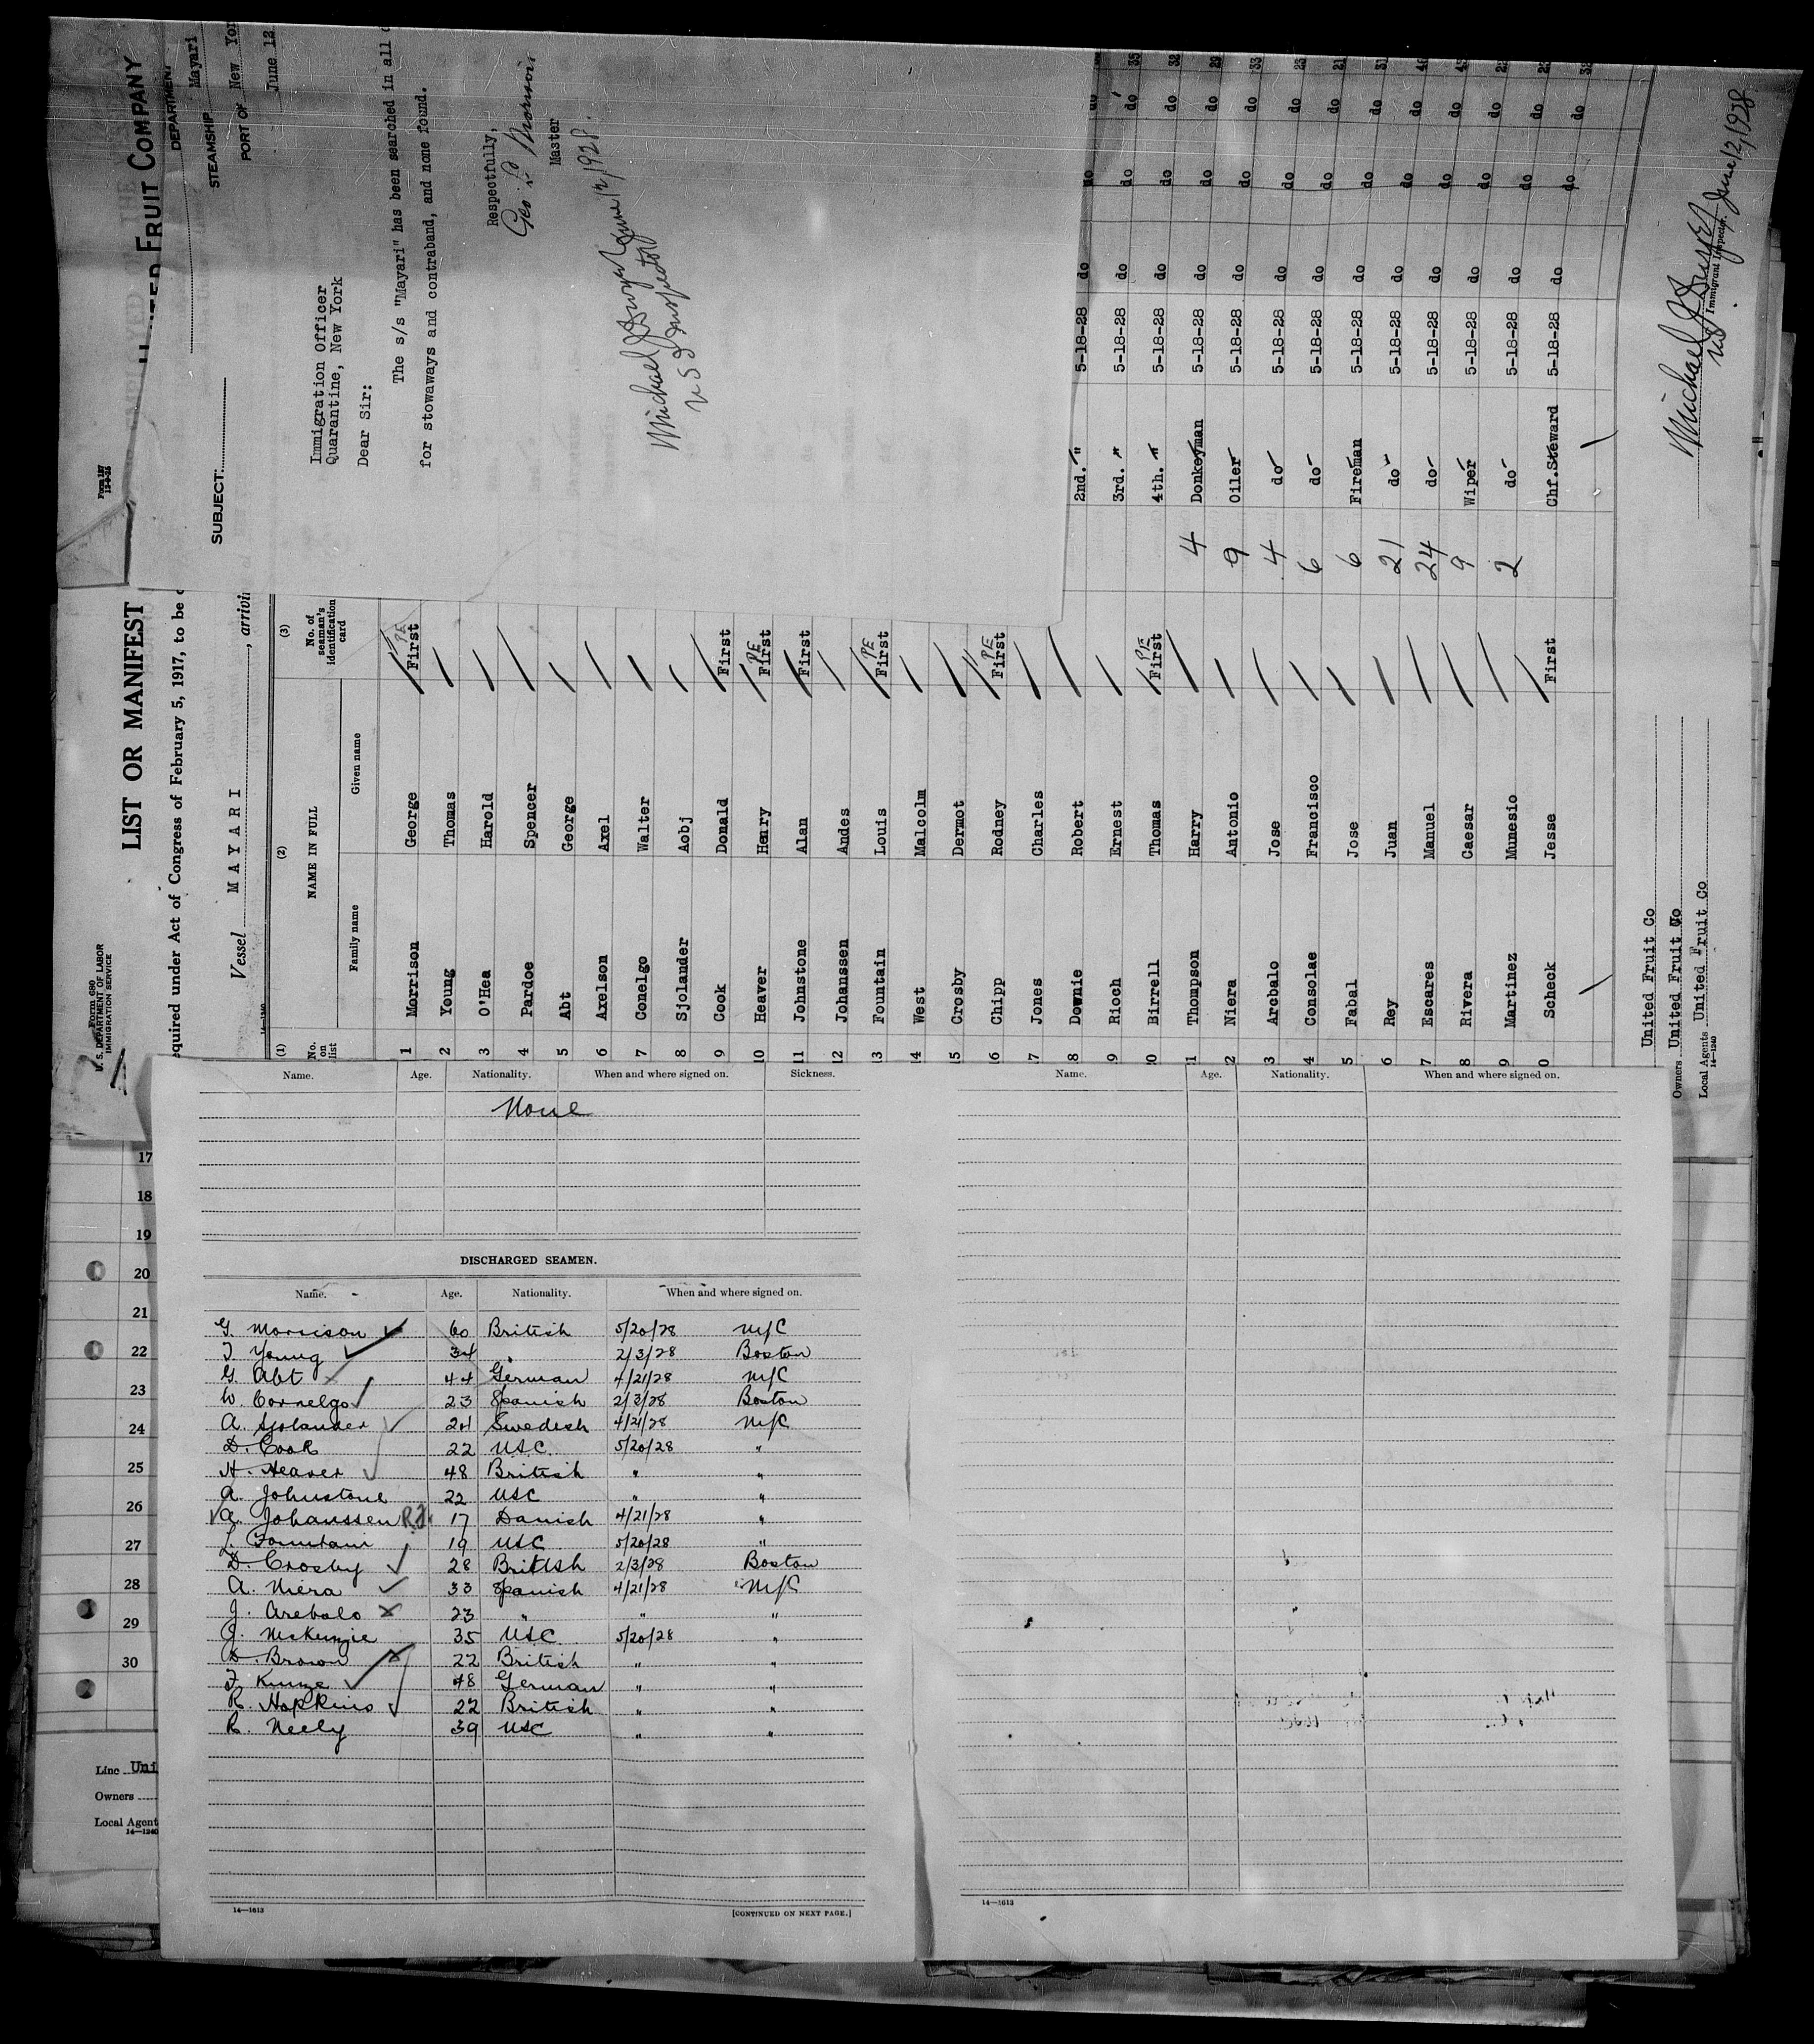 UNITED FRUIT COMPANY
DEPARTMENT
STEAMSHIP Mayari
PORT OF New Yor
June 12
Form 157
SUBJECT:
Immigration Officer
Quarantine, New York
Dear Sir:
The s/s "Mayari" has been searched in all
for stowaways and contraband, and none found.
Respectfully,
Geo. Morrison
Master
June 12, 1928.
Michael J Dwyer
U S Inspector
Form 680
U. S. DEPARTMENT OF LABOR
IMMIGRATION SERVICE
LIST OR MANIFEST
equired under Act of Congress of February 5, 1917, to be
Vessel MAYARI, arrivi
14—1240
(1) (2) (3)
No. on list NAME IN FULL No. of seaman's identification card
Family name Given name
1 Morrison George PE First
2 Young Thomas
3 O'Hea Harold
4 Pardoe Spencer
5 Abt George
6 Axelson Axel
7 Conelgo Walter
8 Sjolander Aobj
9 Cook Donald First
10 Heaver Henry PE First
11 Johnstone Alan First
12 Johanssen Andes
13 Fountain Louis PE First
14 West Malcolm
15 Crosby Dermot
16 Chipp Rodney PE First
17 Jones Charles
8 Downie Robert 2nd. " 5-18-28 do do do
9 Rioch Ernest 3rd. " 5-18-28 do do do 35
0 Birrell Thomas PE First 4th. " 5-18-28 do do do 32
1 Thompson Harry 4 Donkeyman 5-18-28 do do do 29
2 Niera Antonio 9 Oiler 5-18-28 do do do 33
3 Arcbalo Jose 4 do 5-18-28 do do do 23
4 Consolae Francisco 6 do 5-18-28 do do do 21
5 Fabal Jose 6 Fireman 5-18-28 do do do 31
6 Rey Juan 21 do 5-18-28 do do do
7 Escares Manuel 24 do 5-18-28 do do do
8 Rivera Caesar 9 Wiper 5-18-28 do do do
9 Martinez Munesio 2 do 5-18-28 do do do
0 Scheck Jesse First Chf.Steward 5-18-28 do do do
United Fruit Co
Owners United Fruit Co
Local Agents United Fruit Co
14—1240
Michael J Dwyer June 12, 1928
US Immigrant Inspector.
Name. Age. Nationality. When and where signed on. Sickness.
None
DISCHARGED SEAMEN.
Name. Age. Nationality. When and where signed on.
G. Morrison 60 British 5/20/28 NYC
T Young 34 " 2/3/28 Boston
G. Abt 44 German 4/21/28 NYC
W. Cornelgo 23 Spanish 2/3/28 Boston
A. Sjolander 24 Swedish 4/21/28 NYC
D. Cook 22 USC 5/20/28 "
H. Heaver 48 British " "
A. Johnstone 22 USC " "
A. Johanssen 17 Danish 4/21/28 "
L. Fountain 19 USC 5/20/28 "
D. Crosby 28 British 2/3/28 Boston
A. Niera 33 Spanish 4/21/28 NYC
J. Arebalo 23 " " "
J. McKenzie 35 USC 5/20/28 "
D. Brown 22 British " "
F Kunze 48 German " "
R. Hopkins 22 British " "
R. Neely 39 USC " "
14—1613
[CONTINUED ON NEXT PAGE.]
Name. Age. Nationality. When and where signed on.
14—1613
17
18
19
20
21
22
23
24
25
26
27
28
29
30
Line Uni
Owners
Local Agent
14—1240